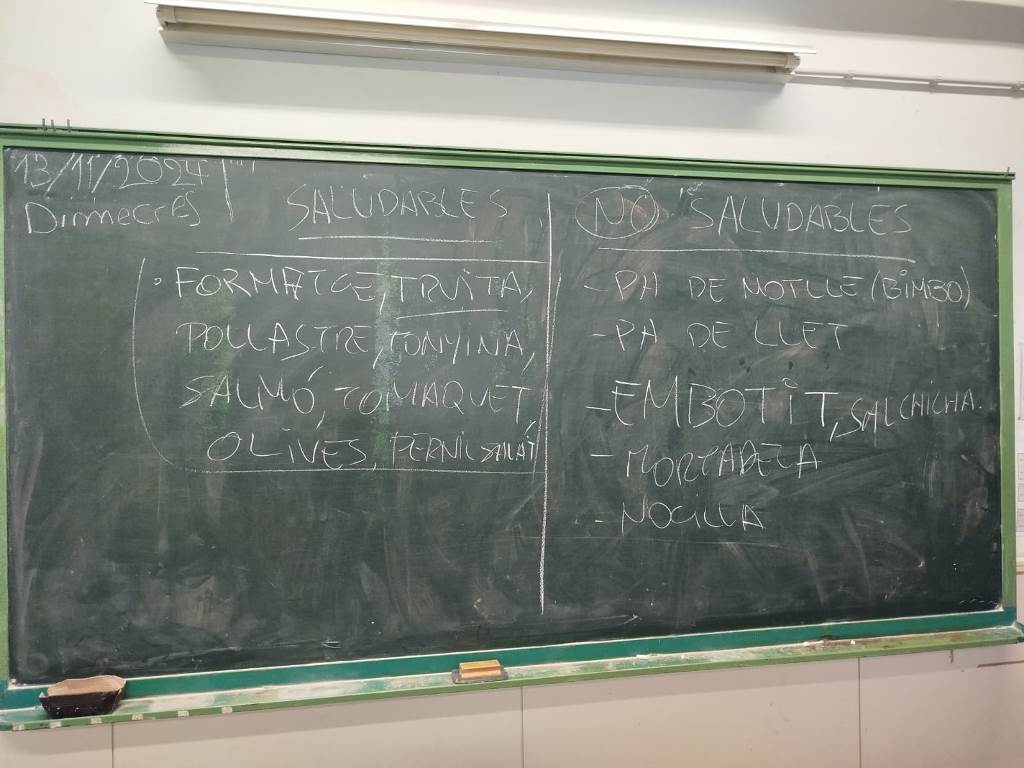 13/11/2024
Dimecres
SALUDABLES
· FORMATGE, TRUITA,
POLLASTRE, TONYINA,
SALMÓ, TOMAQUET,
OLIVES, PERNIL SALAT
NO SALUDABLES
- PA DE MOTLLE (BIMBO)
- PA DE LLET
- EMBOTIT, SALCHICHA.
- MORTADELA
- NOCILLA